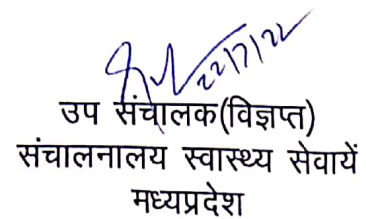 22/7/22
उप संचालक(विज्ञप्त)
संचालनालय स्वास्थ्य सेवायें
मध्यप्रदेश